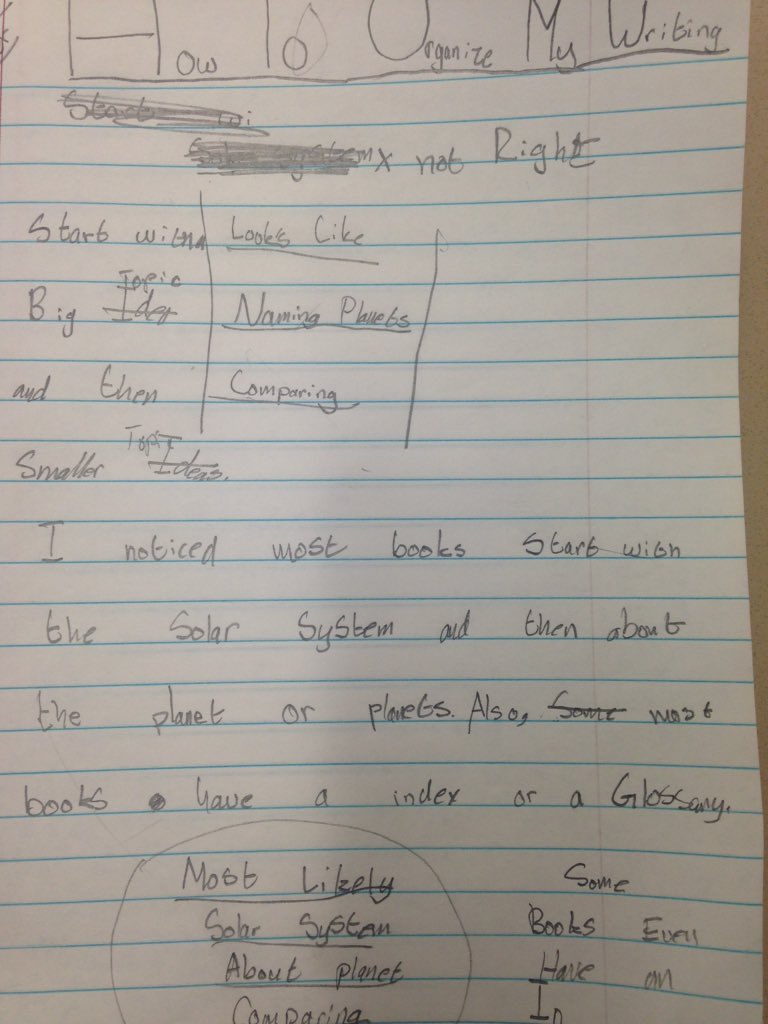 How To Organize My Writing
Start wi
Solar System x not Right
Start with a Looks Like
Topic
Big Idea Naming Planets
and then Comparing
Topi
Smaller Ideas.
I noticed most books Start with
the Solar System and then about
the planet or planets. Also, Some most
books have a index or a Glossary.
Most Likely Some
Solar System Books Even
About planet Have an
Comparing In